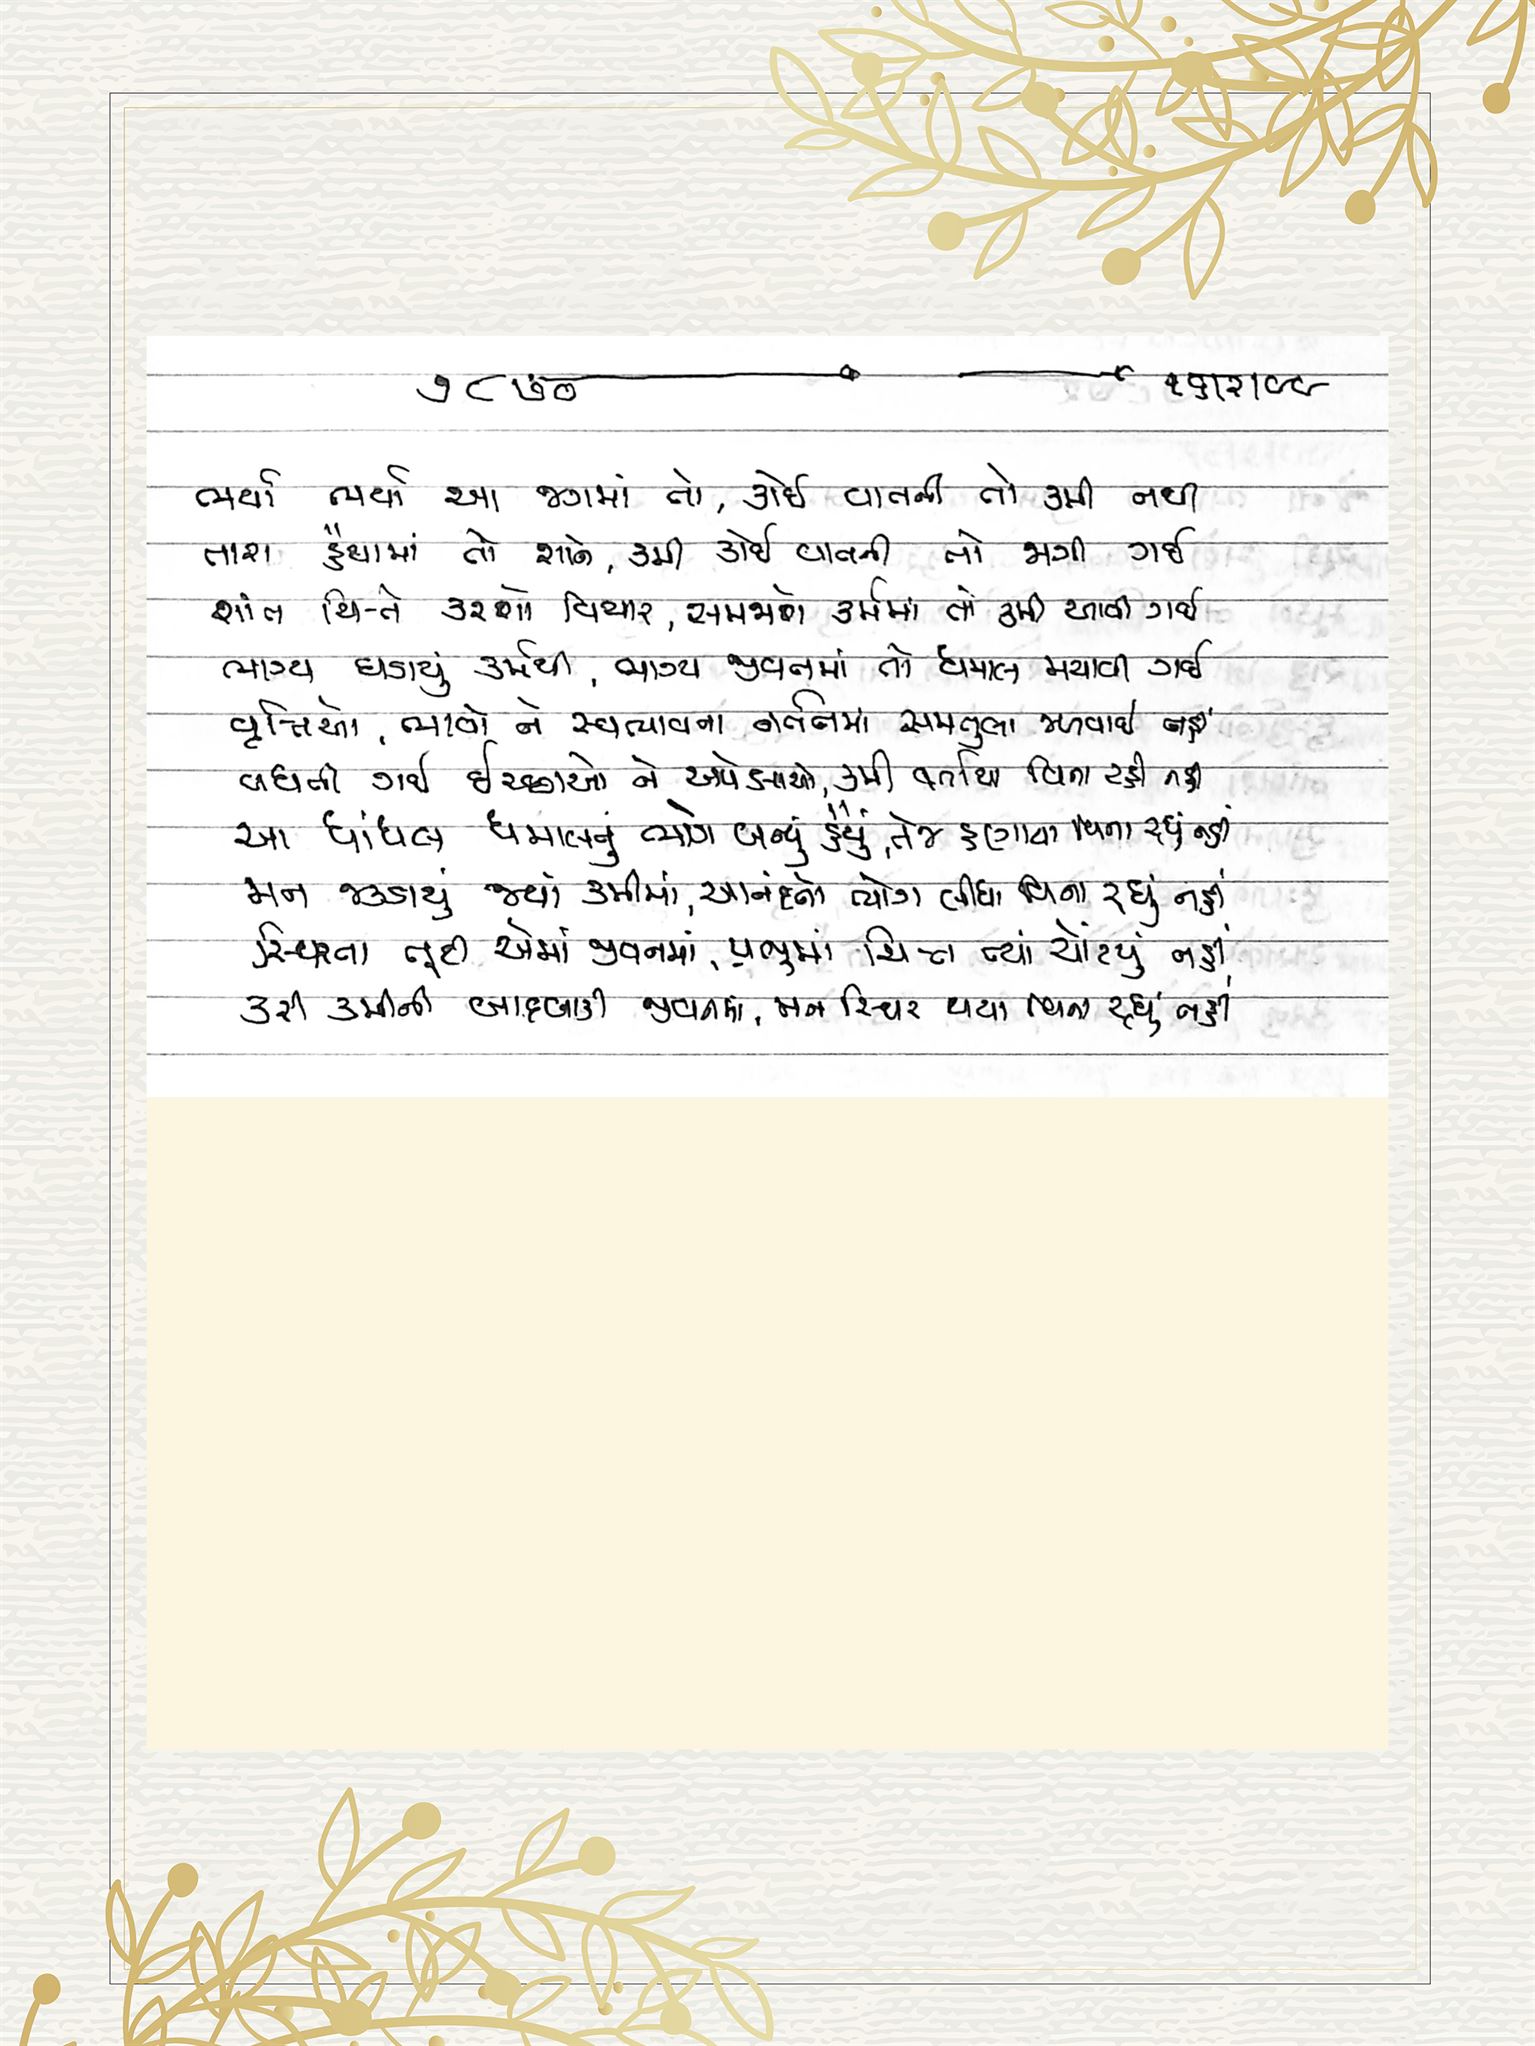 ૭૮૭૦ ૧૭|૨|૯૯
ભર્યા ભર્યા આ જગમાં તો, કોઈ વાતની તો કમી નથી
તારા હૈયામાં તો શાને, કમી કોઈ વાતની તો જાગી ગઈ
શાંત ચિત્તે કરજો વિચાર, સમજાશે કર્મમાં તો કમી આવી ગઈ
ભાગ્ય ઘડાયું કર્મથી, ભાગ્ય જીવનમાં તો ધમાલ મચાવી ગઈ
વૃત્તિઓ, ભાવો ને સ્વભાવના નર્તનમાં સમતુલા જળવાઈ નહીં
વધતી ગઈ ઈચ્છાઓ ને અપેક્ષાઓ, કમી વર્તાયા વિના રહી નહીં
આ ધાંધલ ધમાલનું ભોગ બન્યું હૈયું, તેજ ફણગાવ્યા વિના રહ્યું નહીં
મન જકડાયું જ્યાં કમીમાં, આનંદનો ભોગ લીધા વિના રહ્યું નહીં
સ્થિરતા તૂટી એમાં જીવનમાં, પ્રભુમાં ચિત્ત ત્યાં ચોંટયું નહીં
કરી કમીની બાદબાકી જીવનમાં, મન સ્થિર થયા વિના રહ્યું નહીં